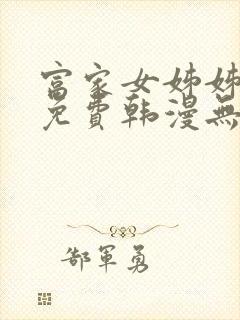 富家女姊姊
免費韩漫無
郜軍勇